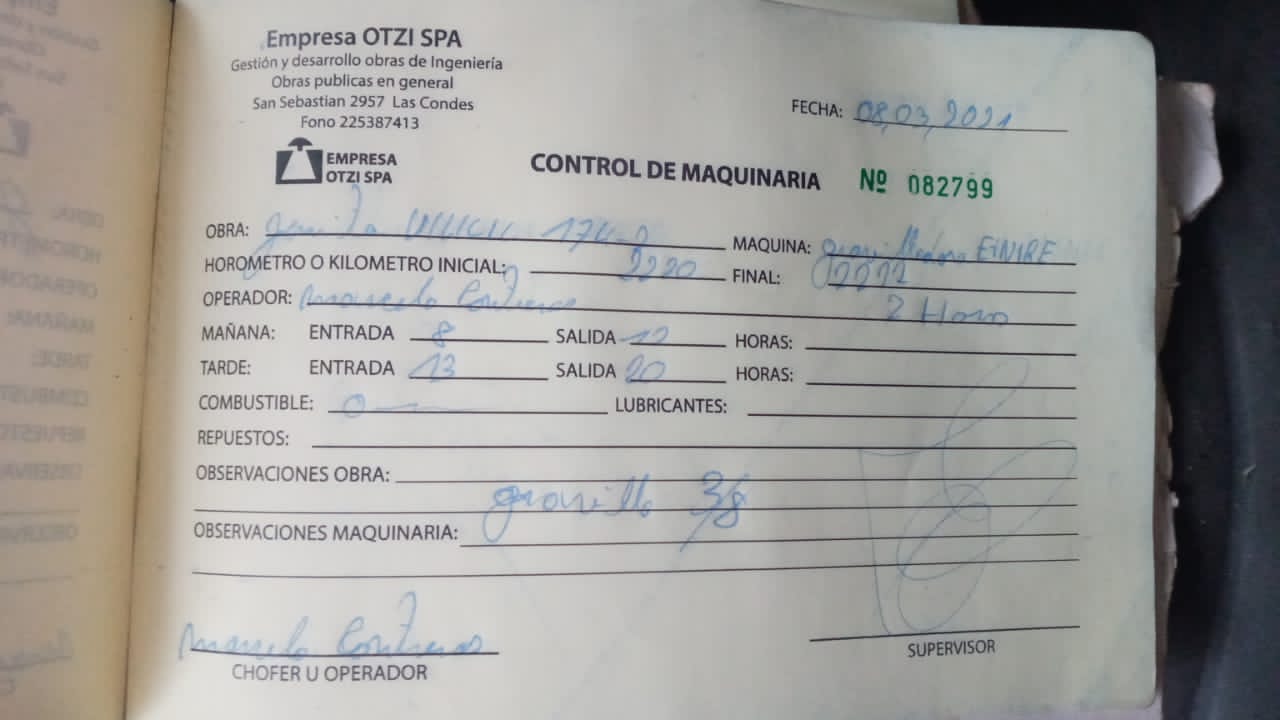 Empresa OTZI SPA
Gestión y desarrollo obras de Ingeniería
Obras publicas en general
San Sebastian 2957 Las Condes
Fono 225387413
FECHA: 08,03,2021
EMPRESA
OTZI SPA
CONTROL DE MAQUINARIA Nº 082799
OBRA: MAQUINA:
HOROMETRO O KILOMETRO INICIAL: 2220 FINAL:
OPERADOR: Marcelo Contreras 2 Horo
MAÑANA: ENTRADA 8 SALIDA 12 HORAS:
TARDE: ENTRADA 13 SALIDA 20 HORAS:
COMBUSTIBLE: 0 LUBRICANTES:
REPUESTOS:
OBSERVACIONES OBRA:
gravilla 3/8
OBSERVACIONES MAQUINARIA:
Marcelo Contreras
CHOFER U OPERADOR
SUPERVISOR